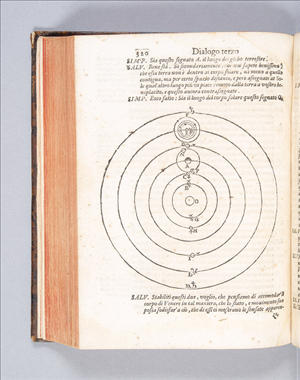 320 Dialogo terzo
SIMP. Sia questo segnato A. il luogo del globo terrestre.
SALV. Bene stà. So secondariamente, che voi sapete benissimo,
che essa terra non è dentro al corpo solare, nè meno a quello
contigua, ma per certo spazio distante, e però assegnate al So-
le qual altro luogo più vi piace remoto dalla terra a vostro be-
neplacito, e questo ancora contrassegnate.
SIMP. Ecco fatto: Sia il luogo del corpo solare questo segnato O.
O
A
SALV. Stabiliti questi due, voglio, che pensiamo di accomodar'il
corpo di Venere in tal maniera, che lo stato, e movimento suo
possa sodisfar' a ciò, che di essi ci mostrano le sensate apparen-